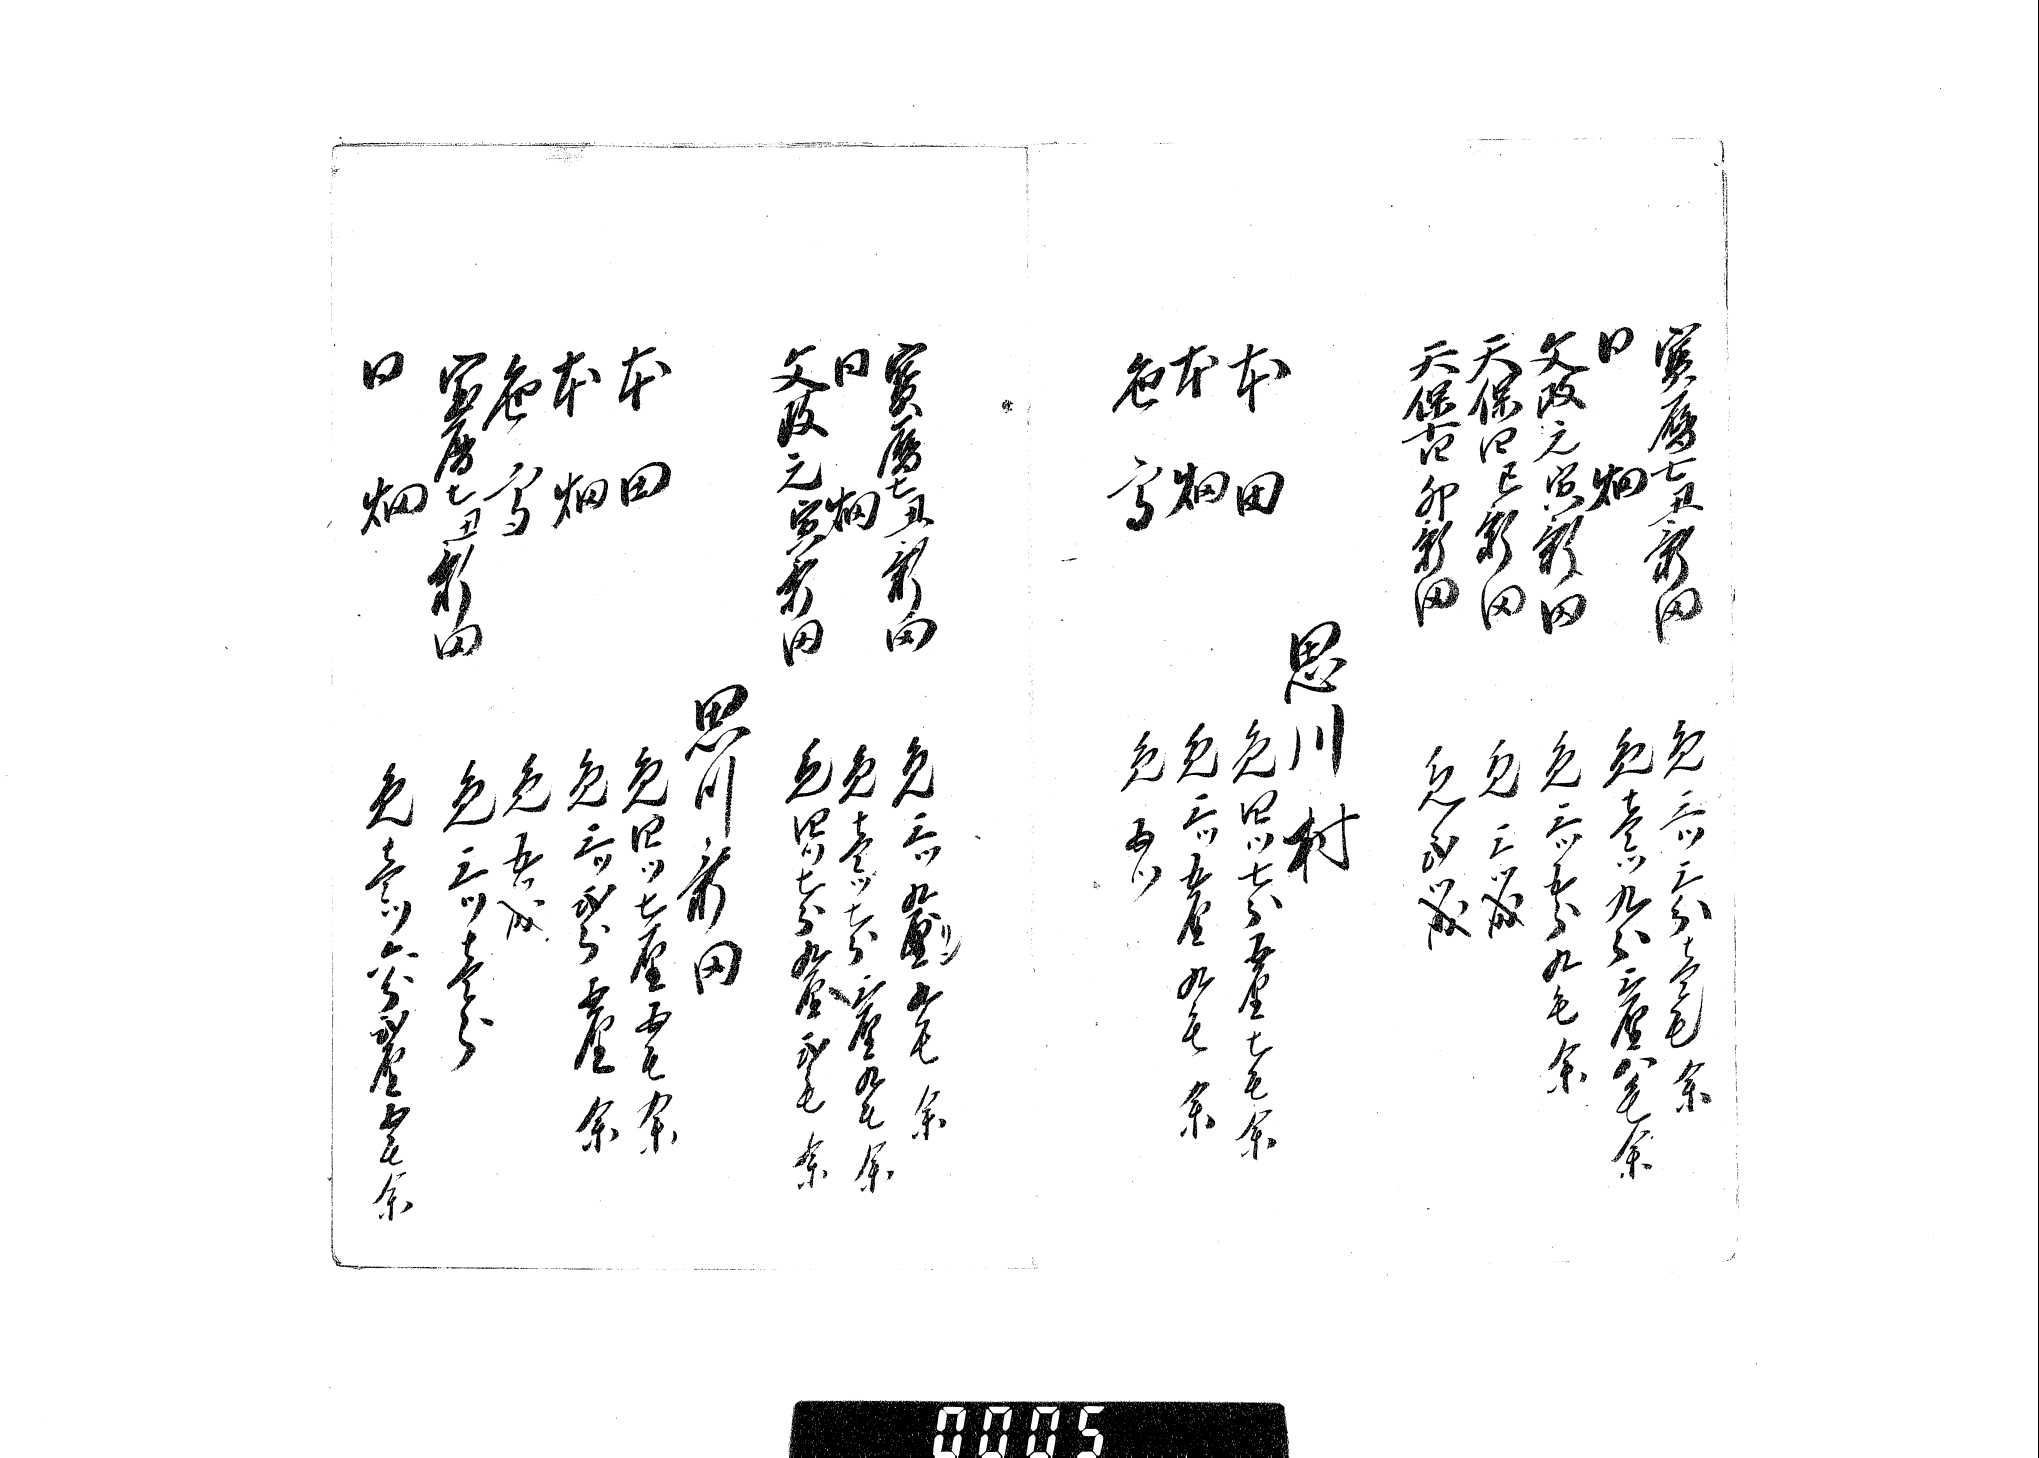 寳暦七丑新田 免三ツ三分壱毛余
同畑 免壱ツ九分三厘八毛余
文政元寅新田 免三ツ五分九毛余
天保四巳新田 免三ツ成
天保十四卯新田 免弐ツ成
思川村
本田 免四ツ七分五厘七毛余
本畑 免三ツ五厘九毛余
色高 免五ツ
寳暦七丑新田 免三ツ九厘五毛余
同畑 免壱ツ七分三厘九毛余
文政元寅新田 免四ツ七分九厘弐毛余
思川新田
本田 免四ツ七厘五毛余
本畑 免三ツ弐分五厘余
色高 免五ツ成
寳暦七丑新田 免三ツ壱分
同畑 免壱ツ六分弐厘五毛余
0005